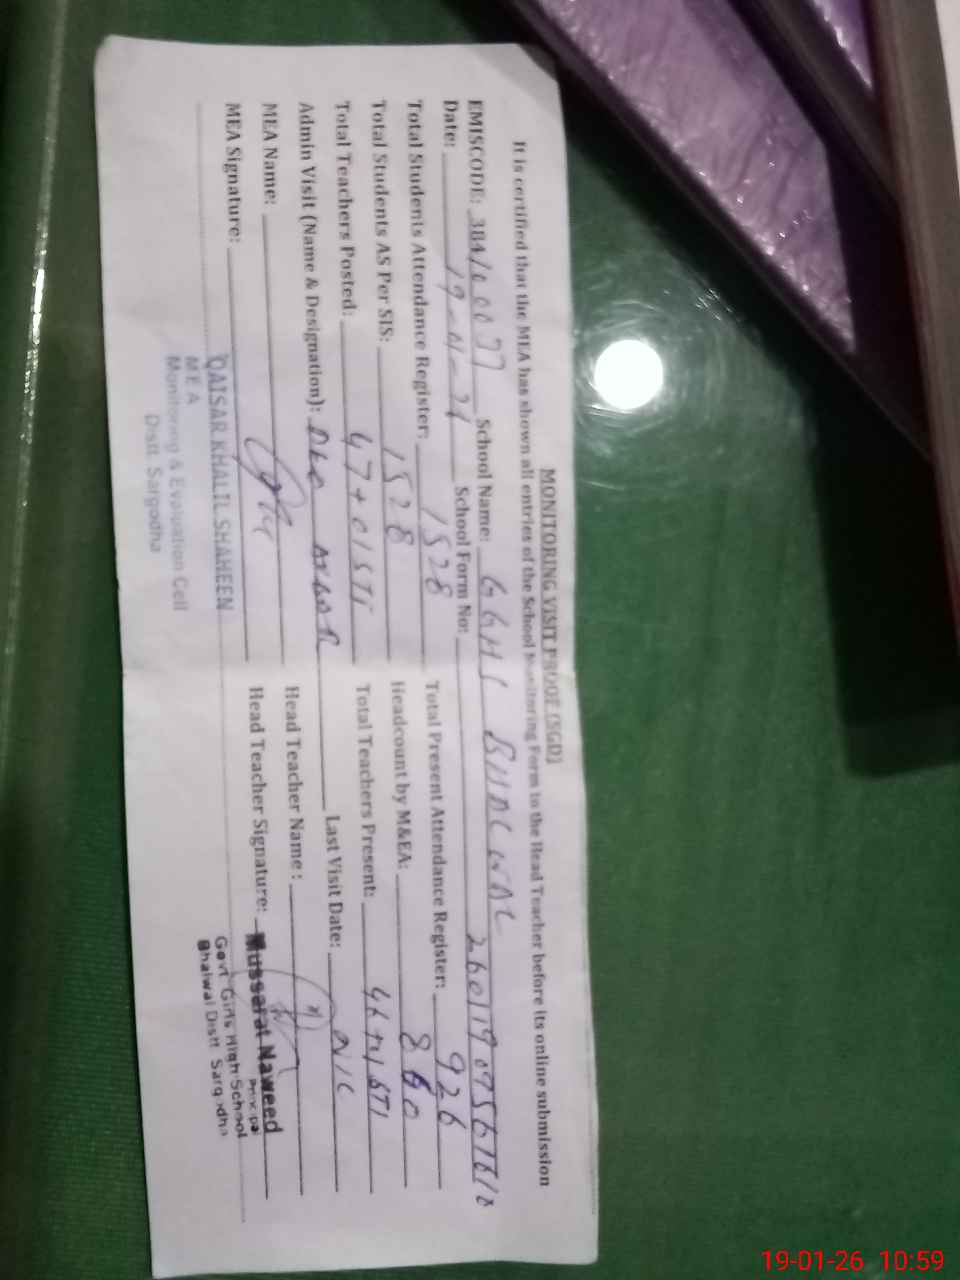 MONITORING VISIT PROOF (SGD)
It is certified that the MEA has shown all entries of the School Monitoring Form to the Head Teacher before its online submission
EMISCODE: 38410037 School Name: GGHS BHALWAL
Date: 19-01-26 School Form No:
Total Students Attendance Register: 1528 Total Present Attendance Register: 926
Total Students AS Per SIS: 1528 Headcount by M&EA: 860
Total Teachers Posted: 47+01STI Total Teachers Present: 46+01STI
Admin Visit (Name & Designation): Last Visit Date:
MEA Name: Head Teacher Name:
MEA Signature: Head Teacher Signature:
QAISAR KHALIL SHAHEEN
M E A
Monitoring & Evaluation Cell
Distt Sargodha
Mussarat Naweed
Principal
Govt Girls High School
Bhalwal Distt Sargodha
19-01-26 10:59